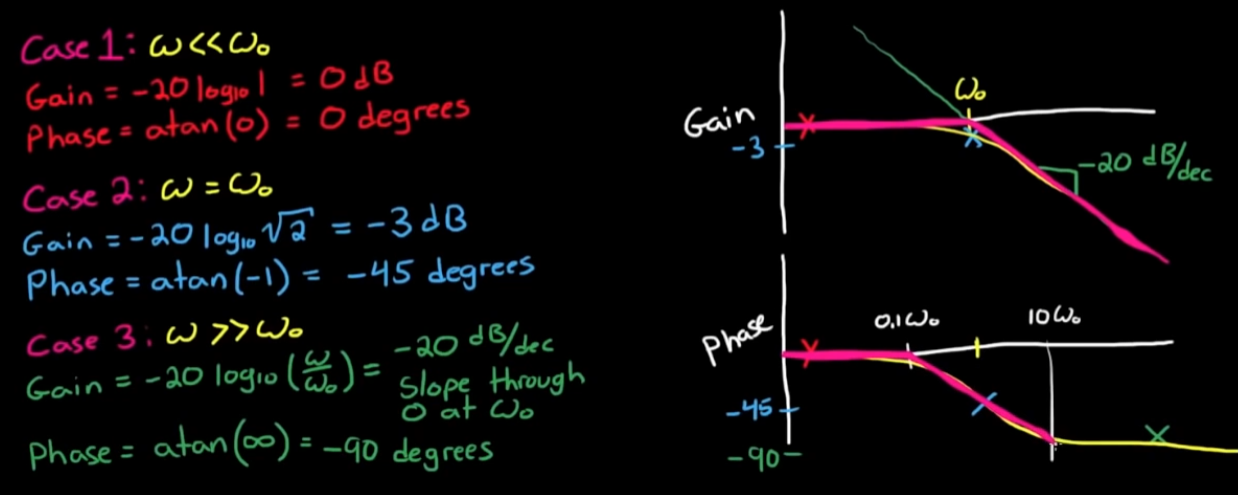 Case 1: ω<<ω₀
Gain = -20 log₁₀ 1 = 0 dB
Phase = atan(0) = 0 degrees
Case 2: ω = ω₀
Gain = -20 log₁₀ √2 = -3 dB
Phase = atan(-1) = -45 degrees
Case 3: ω >> ω₀
Gain = -20 log₁₀ (ω/ω₀) = -20 dB/dec
slope through
0 at ω₀
Phase = atan(∞) = -90 degrees
ω₀
Gain
-3
-20 dB/dec
Phase
0.1ω₀
10ω₀
-45
-90